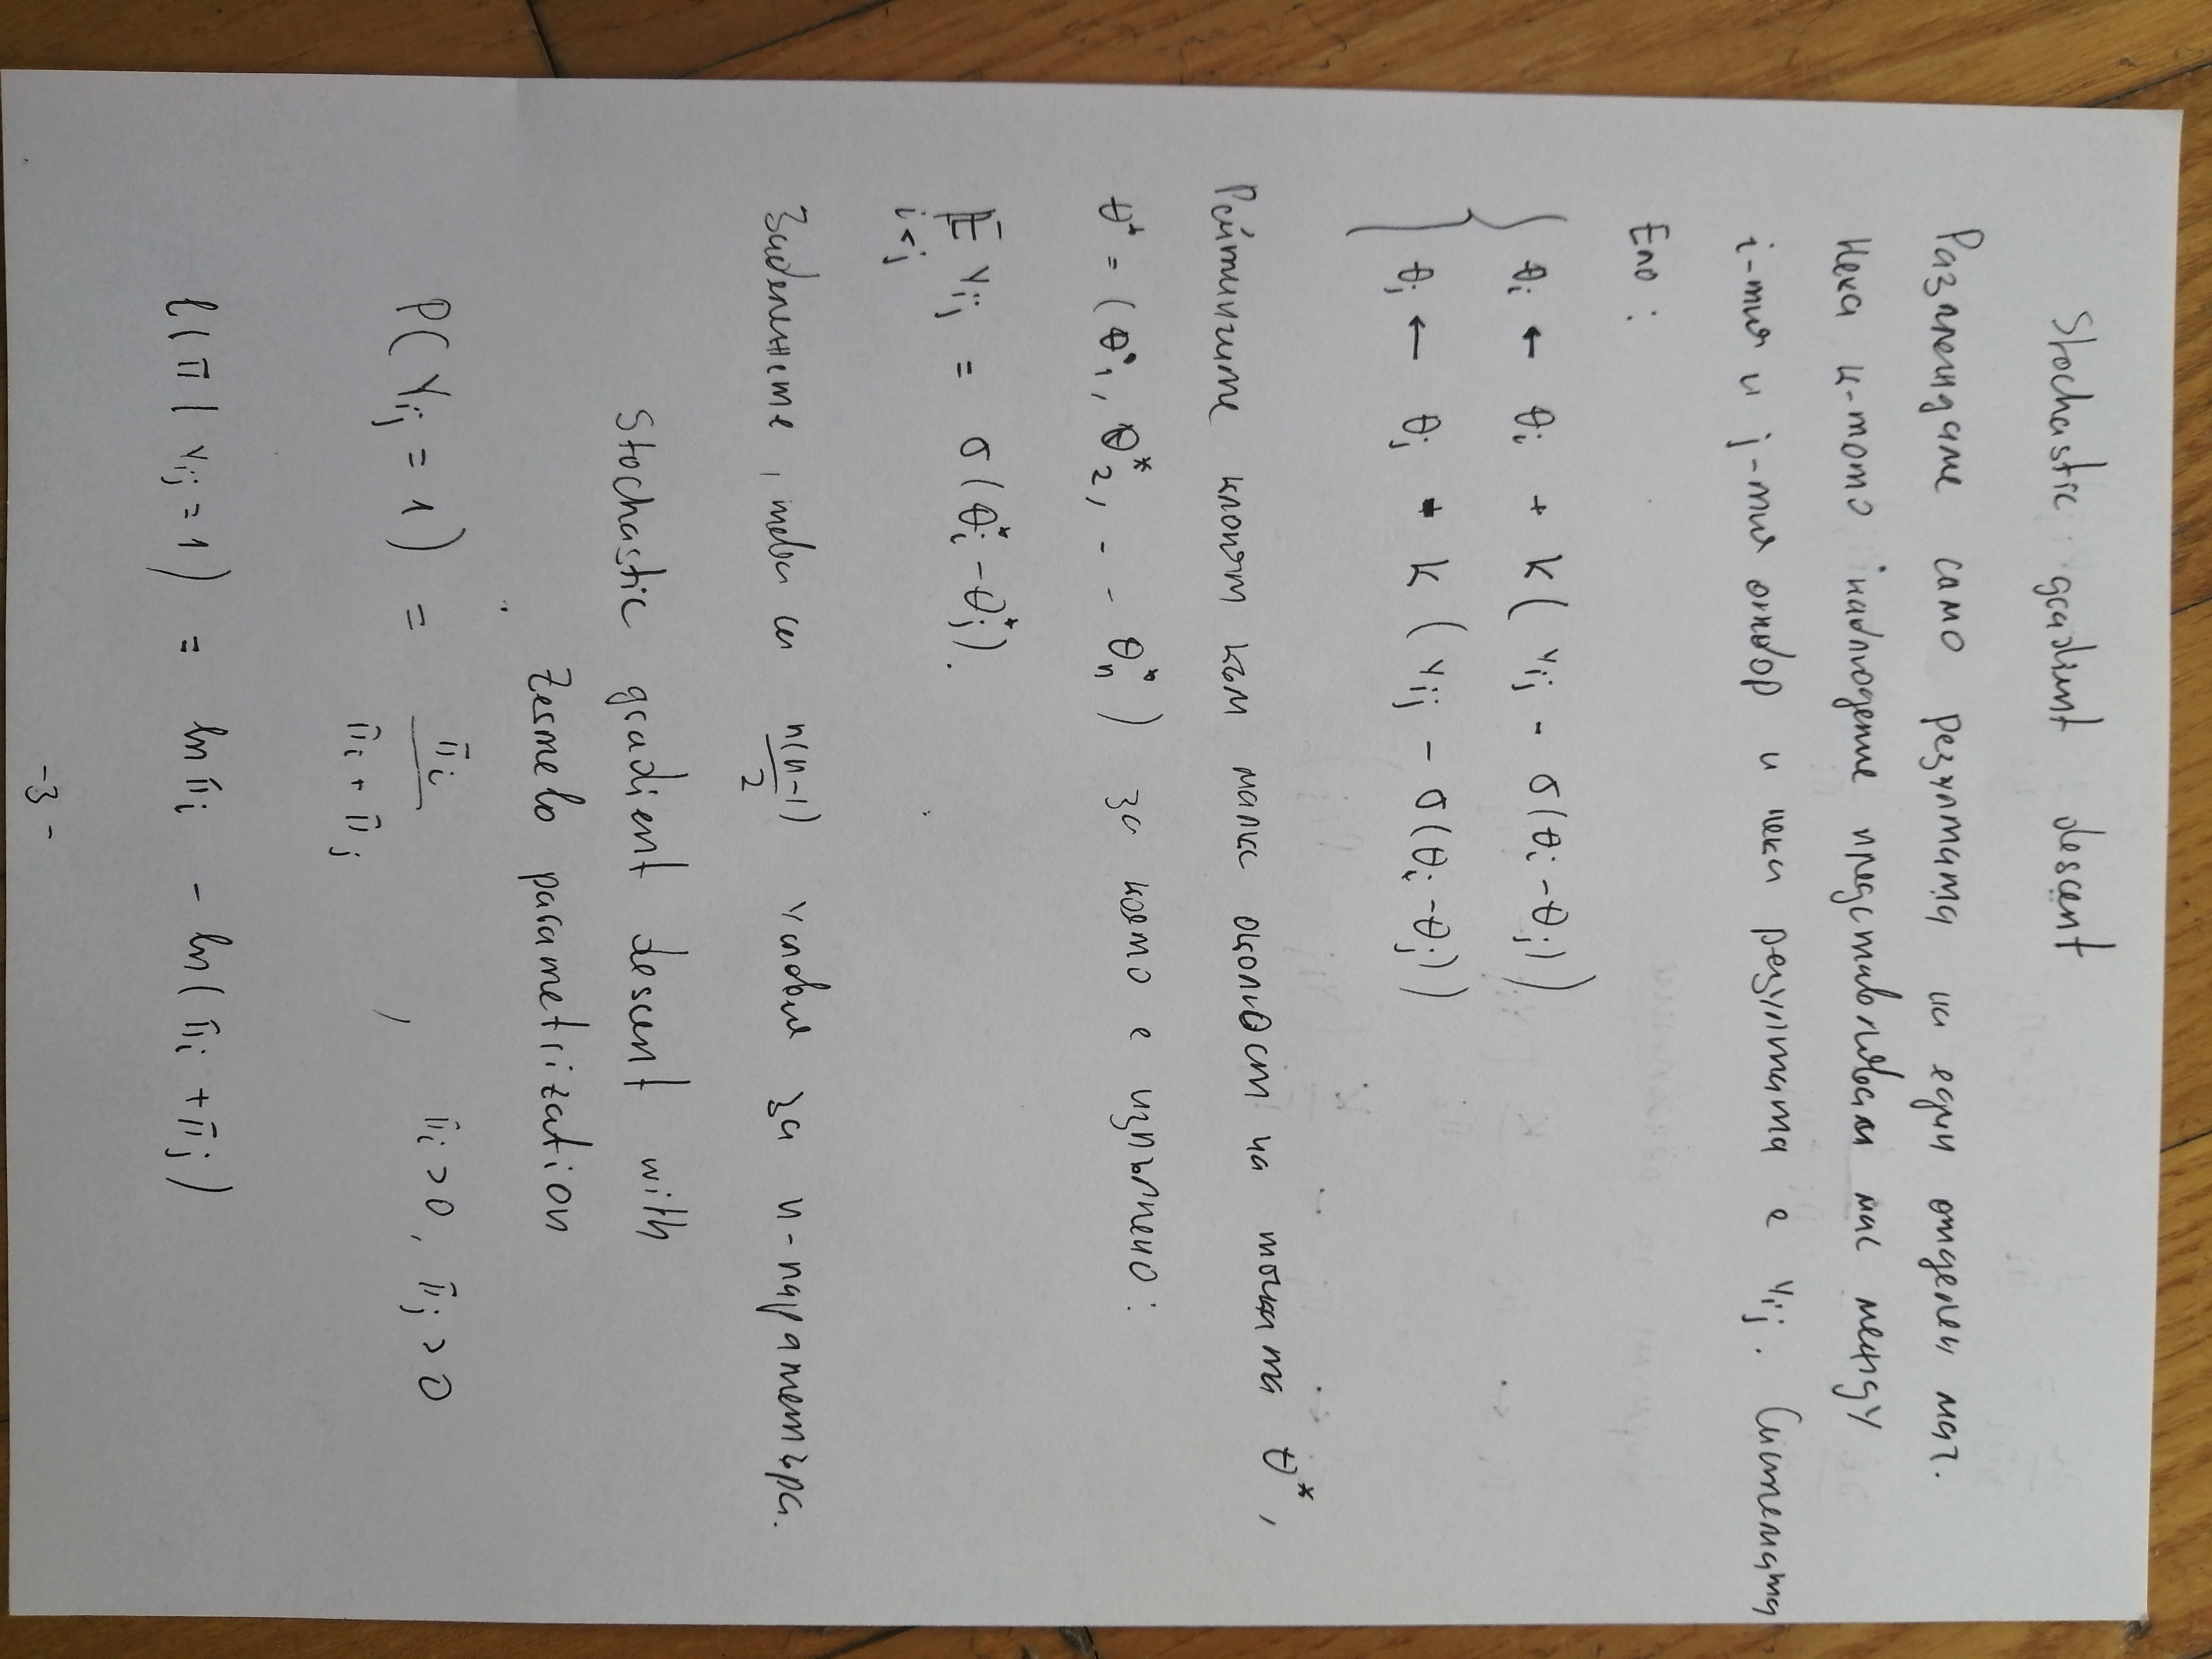 Stochastic gradient descent
Разглеждаме само резултата на един отделен мач.
Нека к-тото наблюдение представляваи мас между
i-тия и j-тия отбор и нека резултата е Yij. Системата
Ело:
θi ← θi + k(Yij - σ(θi - θj))
θj ← θj * k(Yij - σ(θi - θj))
Рейтингите клонят към малка околност на точката θ*,
θ* = (θ*1, θ*2, - - - θ*n) за което е изпълнено:
E Yij = σ(θ*i - θ*j).
i<j
Забележете, това са n(n-1)/2 условия за n-параметъра.
Stochastic gradient descent with
Zermelo parametrization
P(Yij = 1) = πi / (πi + πj) , πi > 0, πj > 0
l(π | Yij = 1) = ln πi - ln(πi + πj)
-3-